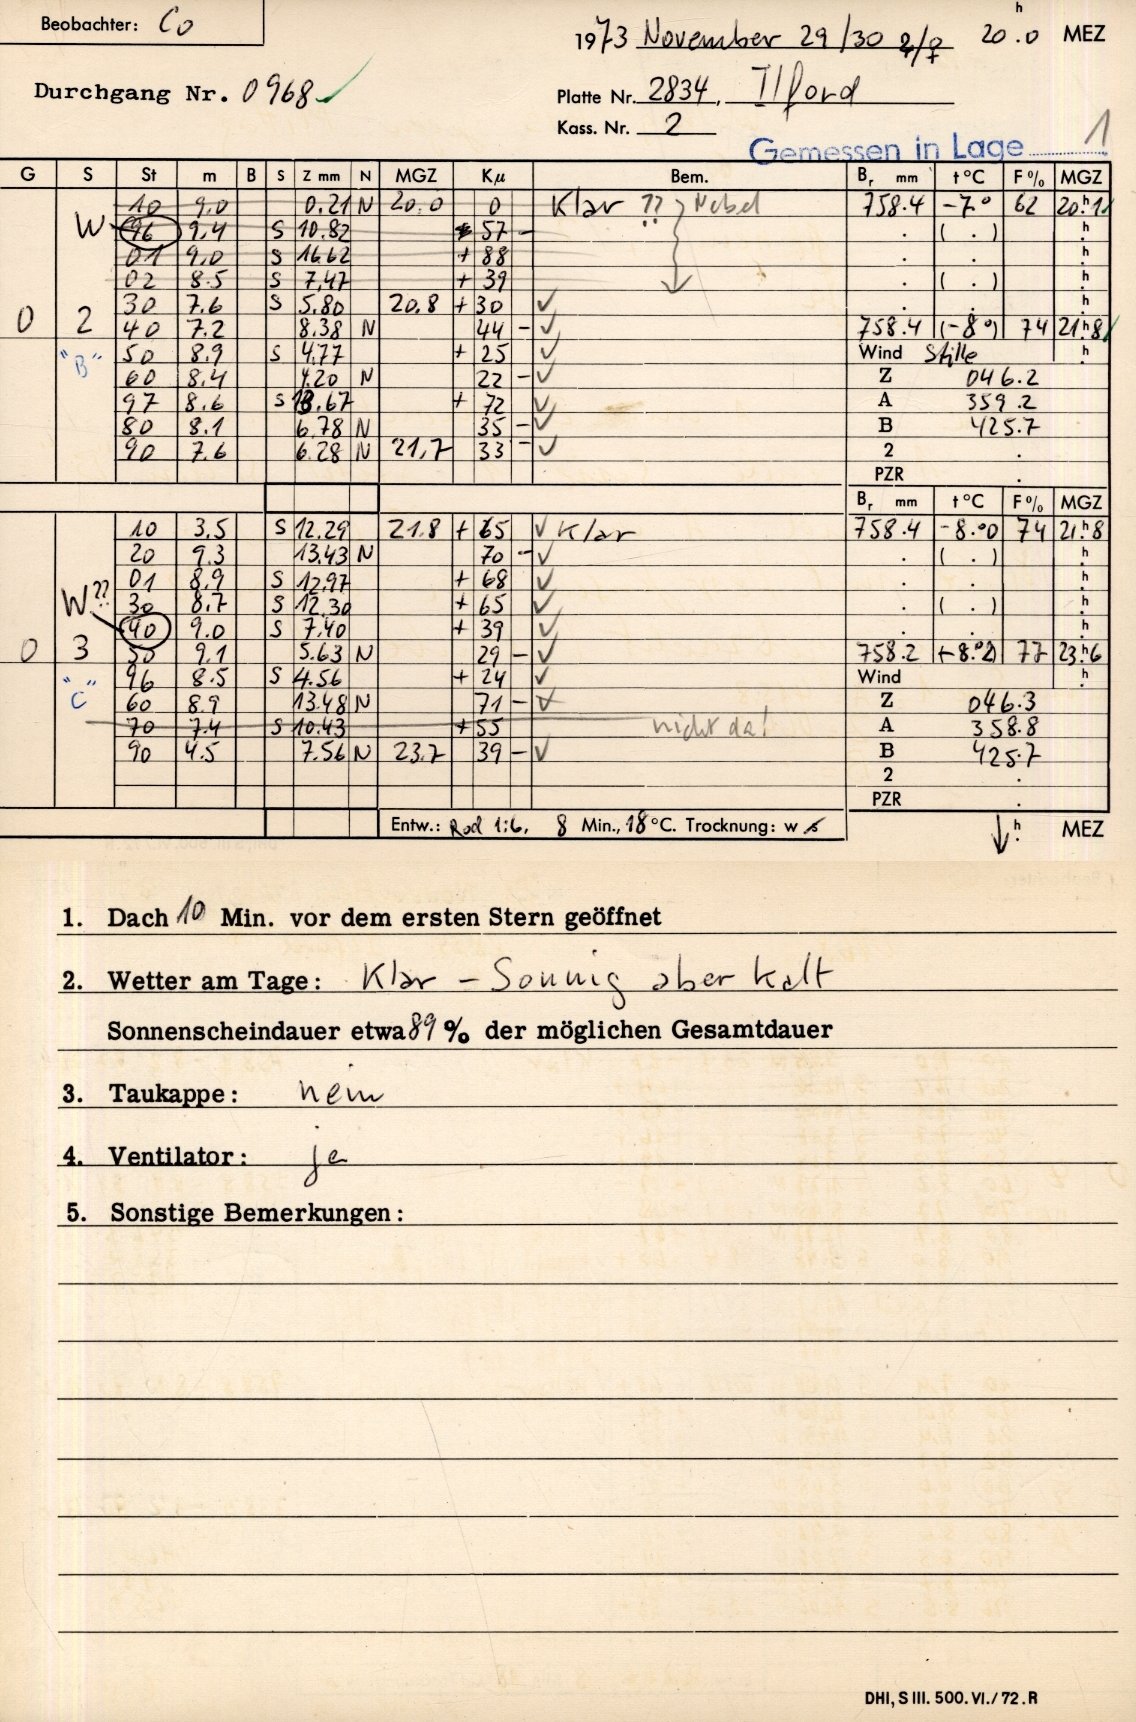 Beobachter: Co
1973 November 29/30 ♃/♀ 20.0 h MEZ
Durchgang Nr. 0968 ✓
Platte Nr. 2834, Ilford
Kass. Nr. 2
Gemessen in Lage 1
G S St m B S Z mm N MGZ Kμ Bem. Br mm t°C F% MGZ
10 9.0 0.21 N 20.0 0 Klar ?? } Nebel 758.4 -7.° 62 20.h1
W 96 9.4 S 10.82 57 - . ( . ) h
01 9.0 S 16.62 + 88 . . h
02 8.5 S 7.47 + 39 . ( . ) h
30 7.6 S 5.80 20.8 + 30 ✓ . . h
0 2 40 7.2 8.38 N 44 - ✓ 758.4 (-8°) 74 21.h8
"B" 50 8.9 S 4.77 + 25 ✓ Wind Stille h
60 8.4 4.20 N 22 - ✓ Z 046.2
97 8.6 S 13.67 + 72 ✓ A 359.2
80 8.1 6.78 N 35 - ✓ B 425.7
90 7.6 6.28 N 21,7 33 - ✓ 2 .
PZR .
Br mm t°C F% MGZ
10 3.5 S 12.29 21.8 + 65 ✓ Klar 758.4 -8.°0 74 21.h8
20 9.3 13.43 N 70 - ✓ . ( . ) h
01 8.9 S 12.97 + 68 ✓ . . h
W?? 30 8.7 S 12.30 + 65 ✓ . ( . ) h
40 9.0 S 7.40 + 39 ✓ . . h
0 3 50 9.1 5.63 N 29 - ✓ 758.2 (-8.°2) 77 23.h6
"C" 96 8.5 S 4.56 + 24 ✓ Wind h
60 8.9 13.48 N 71 - ✓ Z 046.3
70 7.4 S 10.43 + 55 nicht da! A 358.8
90 4.5 7.56 N 23.7 39 - ✓ B 425.7
2 .
PZR .
Entw.: Rod 1:6, 8 Min., 18 °C. Trocknung: w s ↓ h. MEZ
1. Dach 10 Min. vor dem ersten Stern geöffnet
2. Wetter am Tage: Klar – Sonnig aber kalt
Sonnenscheindauer etwa 89 % der möglichen Gesamtdauer
3. Taukappe: nein
4. Ventilator: ja
5. Sonstige Bemerkungen:
DHI, S III. 500. VI./72. R